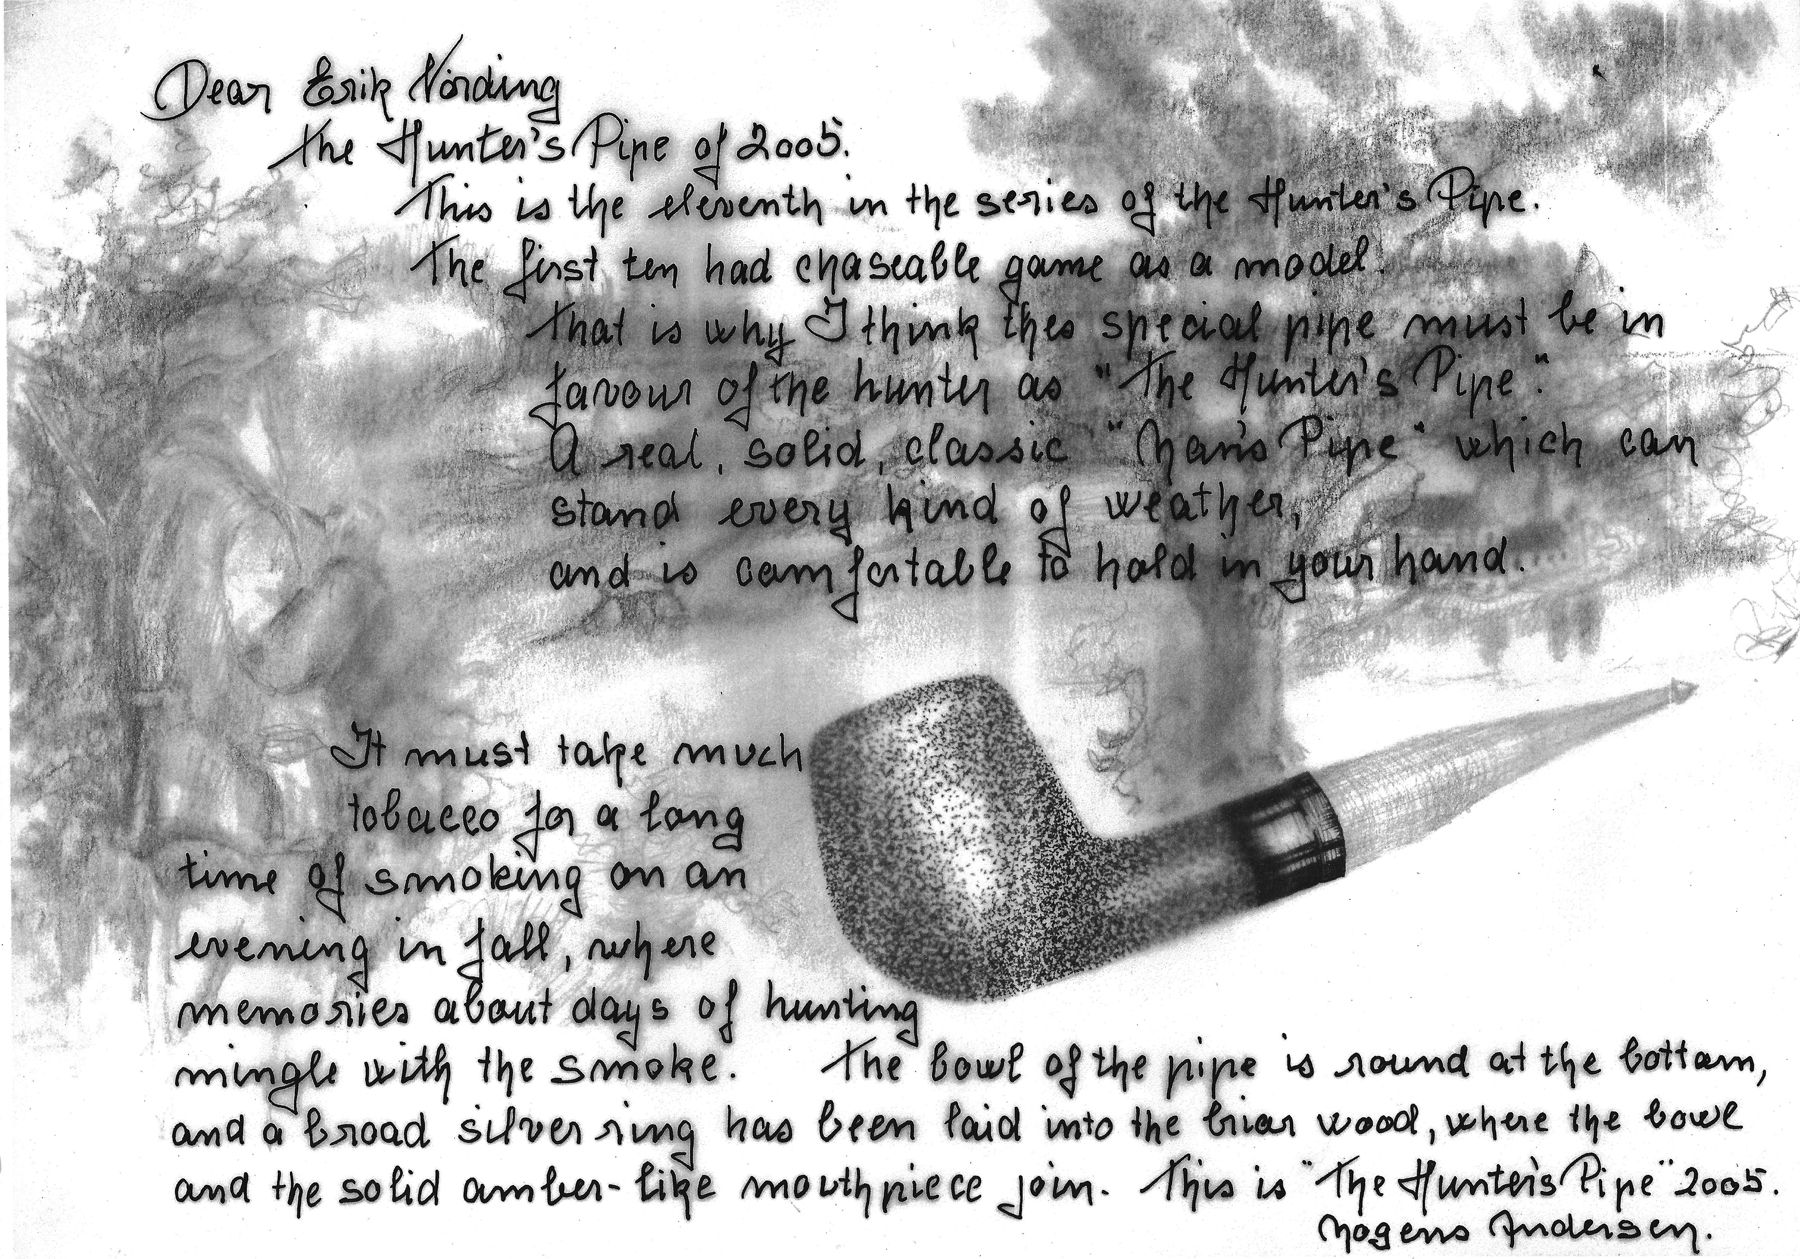 Dear Erik Nörding
The Hunter's Pipe of 2005.
This is the eleventh in the series of the Hunter's Pipe.
The first ten had chaseable game as a model.
That is why I think thes special pipe must be in
favour of the hunter as "The Hunter's Pipe".
A real, solid, classic "Man's Pipe" which can
stand every kind of weather,
and is comfortable to hold in your hand.
It must take much
tobacco for a long
time of smoking on an
evening in fall, where
memories about days of hunting
mingle with the smoke. The bowl of the pipe is round at the bottom,
and a broad silver ring has been laid into the briar wood, where the bowl
and the solid amber-like mouthpiece join. This is "The Hunter's Pipe" 2005.
Mogens Andersen.